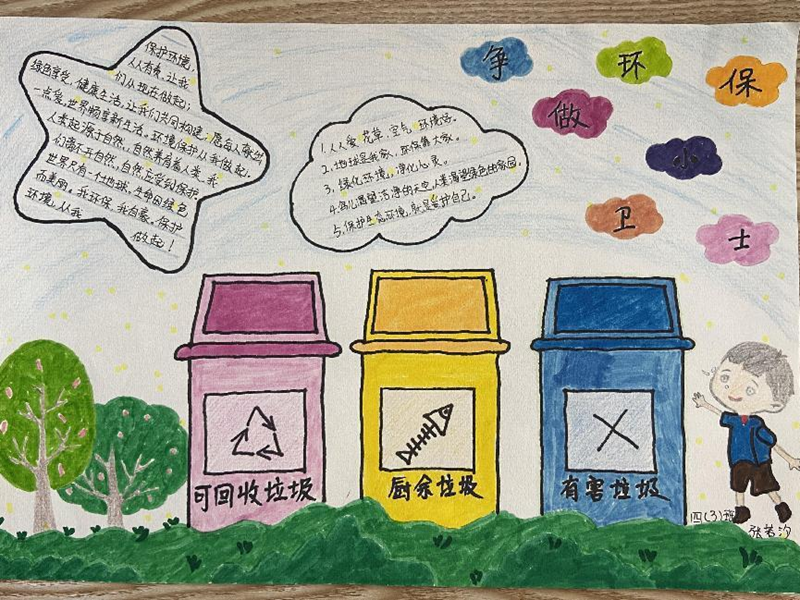 争做环保小卫士
保护环境,
人人有责,让我
们从现在做起;
绿色享受,健康生活,让我们共同构建;愿每人献出
一点爱,世界畅享新生活。环境保护从我做起,
人类起源于自然,自然养育着人类,我
们离不开自然,自然应受到保护
世界只有一个地球,生命因绿色
而美丽。我环保,我自豪。保护
环境,从我
做起!
1.人人爱花草,空气,环境活。
2.地球是我家,环保靠大家。
3.绿化环境,净化心灵。
4.鸟儿渴望洁净的天空,人类渴望绿色的家园。
5.保护生态环境,就是爱护自己。
可回收垃圾
厨余垃圾
有害垃圾
四(3)班
张若汐